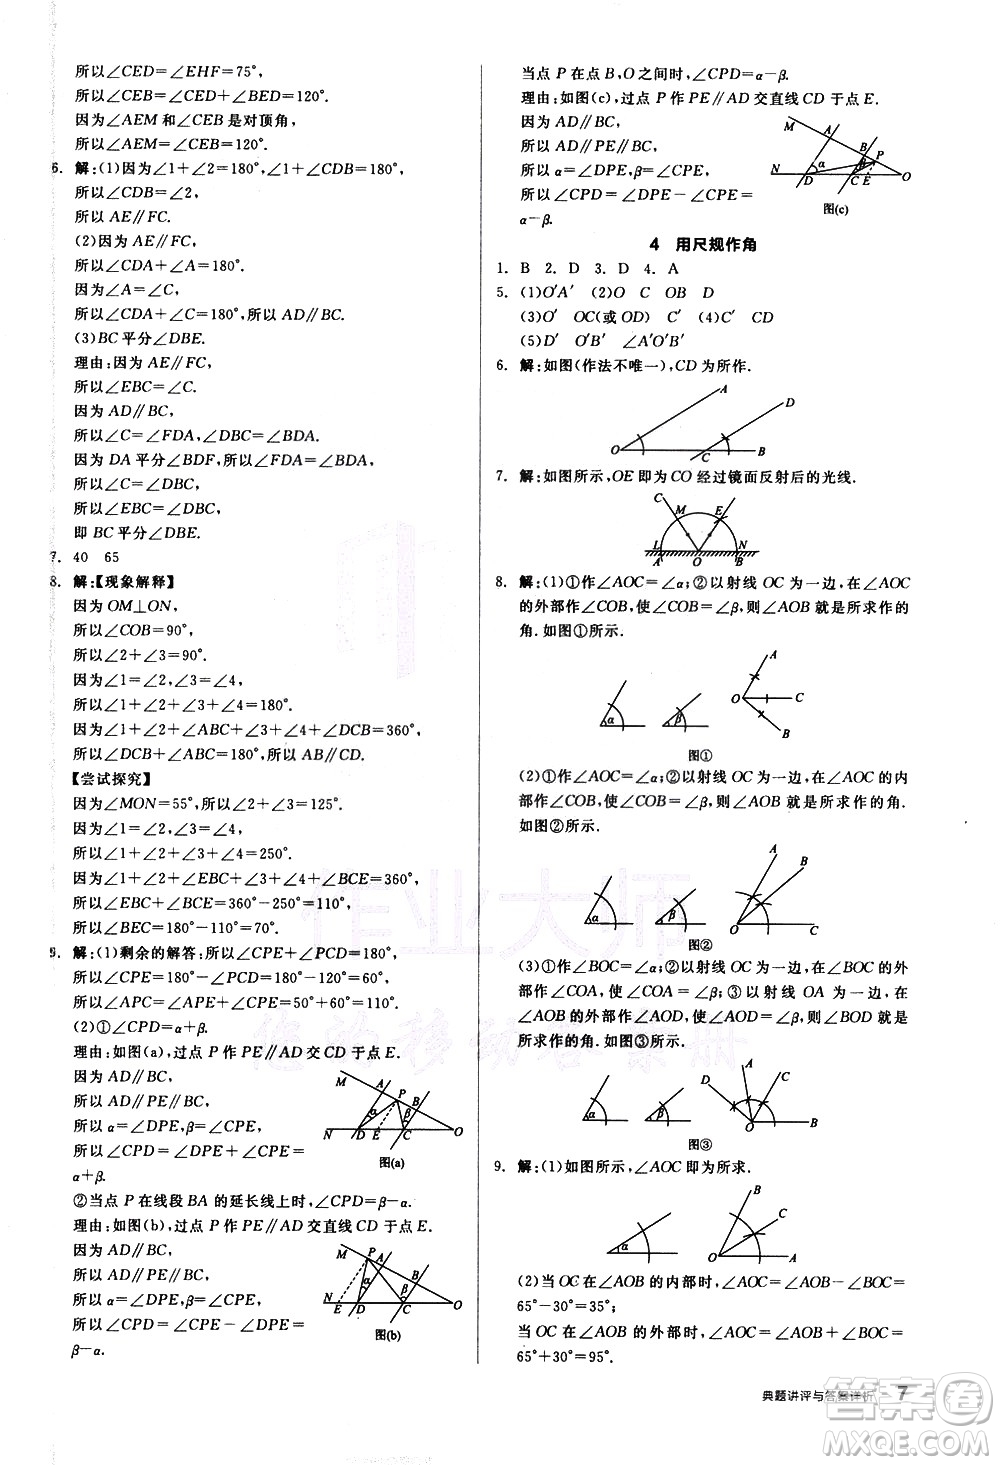 所以∠CED=∠EHF=75°,
所以∠CEB=∠CED+∠BED=120°.
因为∠AEM和∠CEB是对顶角,
所以∠AEM=∠CEB=120°.
6. 解:(1)因为∠1+∠2=180°,∠1+∠CDB=180°,
所以∠CDB=∠2,
所以AE∥FC.
(2)因为AE∥FC,
所以∠CDA+∠A=180°.
因为∠A=∠C,
所以∠CDA+∠C=180°,所以AD∥BC.
(3)BC平分∠DBE.
理由:因为AE∥FC,
所以∠EBC=∠C.
因为AD∥BC,
所以∠C=∠FDA,∠DBC=∠BDA.
因为DA平分∠BDF,所以∠FDA=∠BDA,
所以∠C=∠DBC,
所以∠EBC=∠DBC,
即BC平分∠DBE.
7. 40 65
8. 解:【现象解释】
因为OM⊥ON,
所以∠COB=90°,
所以∠2+∠3=90°.
因为∠1=∠2,∠3=∠4,
所以∠1+∠2+∠3+∠4=180°.
因为∠1+∠2+∠ABC+∠3+∠4+∠DCB=360°,
所以∠DCB+∠ABC=180°,所以AB∥CD.
【尝试探究】
因为∠MON=55°,所以∠2+∠3=125°.
因为∠1=∠2,∠3=∠4,
所以∠1+∠2+∠3+∠4=250°.
因为∠1+∠2+∠EBC+∠3+∠4+∠BCE=360°,
所以∠EBC+∠BCE=360°-250°=110°,
所以∠BEC=180°-110°=70°.
9. 解:(1)剩余的解答:所以∠CPE+∠PCD=180°,
所以∠CPE=180°-∠PCD=180°-120°=60°,
所以∠APC=∠APE+∠CPE=50°+60°=110°.
(2)①∠CPD=α+β.
理由:如图(a),过点P作PE∥AD交CD于点E.
因为AD∥BC,
所以AD∥PE∥BC,
所以α=∠DPE,β=∠CPE,
所以∠CPD=∠DPE+∠CPE=
α+β.
M A P B α β N D E C O
图(a)
②当点P在线段BA的延长线上时,∠CPD=β-α.
理由:如图(b),过点P作PE∥AD交直线CD于点E.
因为AD∥BC,
所以AD∥PE∥BC,
所以α=∠DPE,β=∠CPE,
所以∠CPD=∠CPE-∠DPE=
β-α.
M P A B α β N E D C O
图(b)
当点P在点B,O之间时,∠CPD=α-β.
理由:如图(c),过点P作PE∥AD交直线CD于点E.
因为AD∥BC,
所以AD∥PE∥BC,
所以α=∠DPE,β=∠CPE,
所以∠CPD=∠DPE-∠CPE=
α-β.
M A B P α N D C E O
图(c)
4 用尺规作角
1. B 2. D 3. D 4. A
5. (1)O′A′ (2)O C OB D
(3)O′ OC(或OD) C′ (4)C′ CD
(5)D′ O′B′ ∠A′O′B′
6. 解:如图(作法不唯一),CD为所作.
A D O C B
7. 解:如图所示,OE即为CO经过镜面反射后的光线.
C M E L N A O B
8. 解:(1)①作∠AOC=∠α;②以射线OC为一边,在∠AOC
的外部作∠COB,使∠COB=∠β,∠AOB就是所求作的
角.如图①所示.
α β A O C B
图①
(2)①作∠AOC=∠α;②以射线OC为一边,在∠AOC的内
部作∠COB,使∠COB=∠β,∠AOB就是所求作的角.
如图②所示.
α β A B O C
图②
(3)①作∠BOC=∠α;②以射线OC为一边,在∠BOC的外
部作∠COA,使∠COA=∠β;③以射线OA为一边,在
∠AOB的外部作∠AOD,使∠AOD=∠β,∠BOD就是
所求作的角.如图③所示.
α β D A C O B
图③
9. 解:(1)如图所示,∠AOC即为所求.
α B C O A
(2)当OC在∠AOB的内部时,∠BOC=∠AOB-∠AOC=
65°-30°=35°;
当OC在∠AOB的外部时,∠BOC=∠AOB+∠AOC=
65°+30°=95°.
典题讲评与答案详析 7
作业大师
答案圈
MXQE.COM